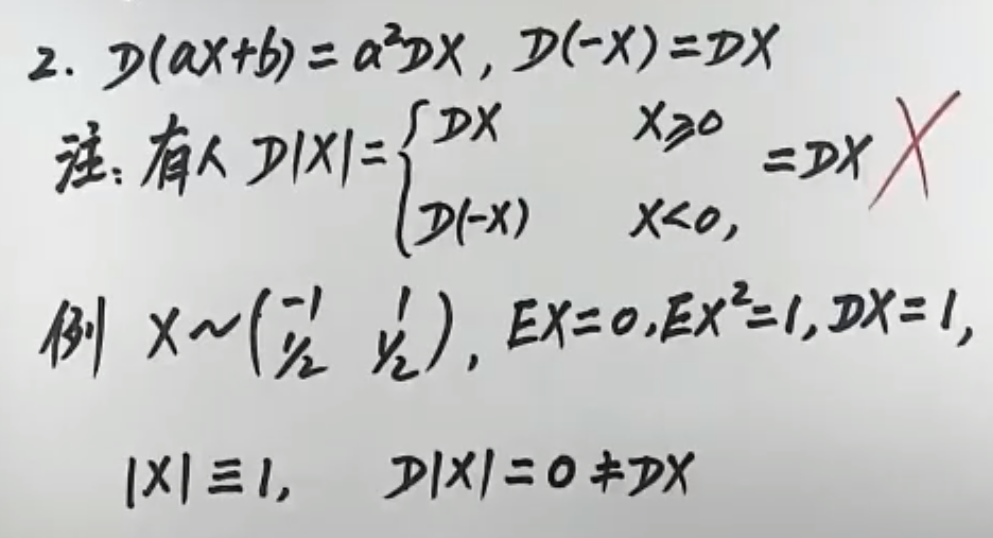 2. D(aX+b)=a²DX, D(-X)=DX
注: 有人 D|X|={DX X≥0 =DX X
D(-X) X<0,
例 X~(-1 1
1/2 1/2), EX=0, EX²=1, DX=1,
|X|≡1, D|X|=0≠DX